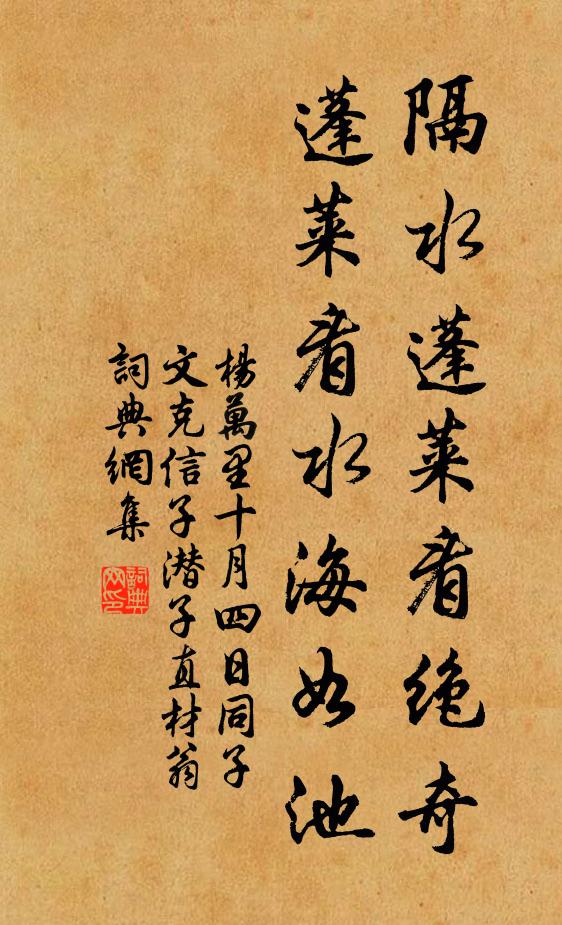 隔水蓬莱看绝奇
蓬莱看水海如池
楊萬里十月四日同子
文克信子潜子直材翁
詞典網集
詞典
网印